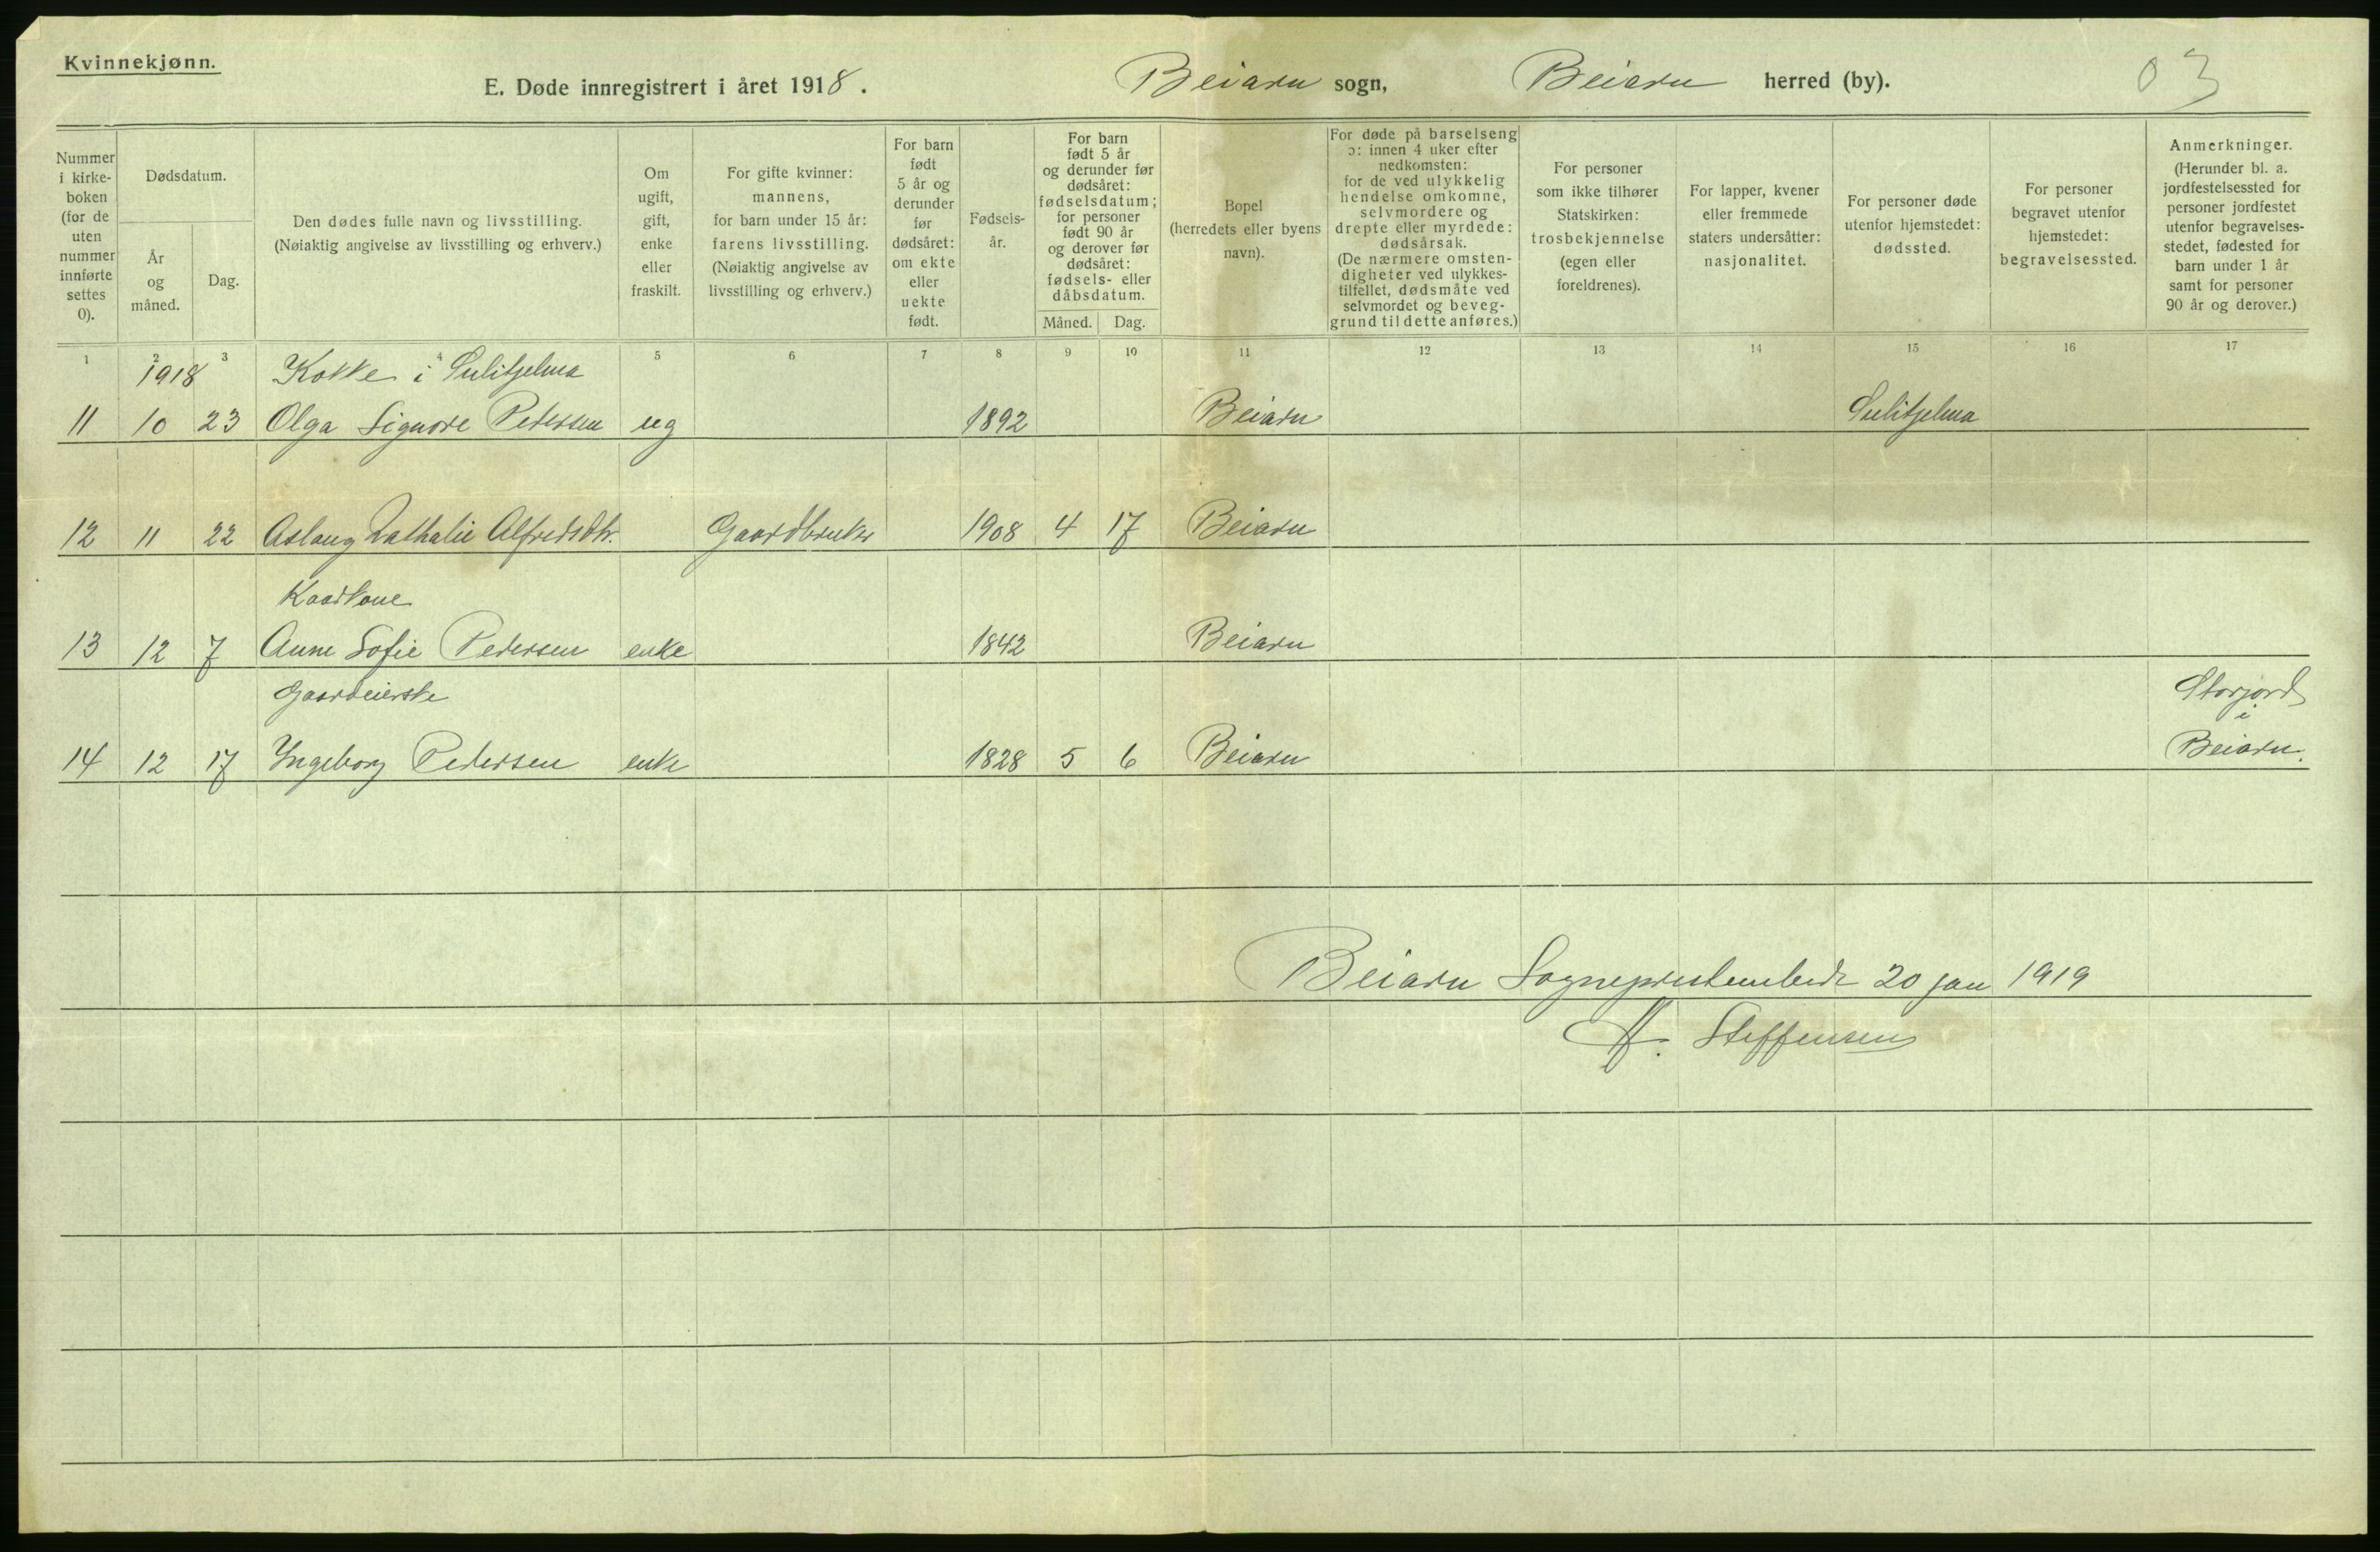 Kvinnekjønn.
E. Døde innregistrert i året 1918. Beiarn sogn, Beiarn herred (by). 03
Nummer i kirkeboken (for de uten nummer innførte settes 0).
Dødsdatum.
År og måned.
Dag.
Den dødes fulle navn og livsstilling.
(Nøiaktig angivelse av livsstilling og erhverv.)
Om ugift, gift, enke eller fraskilt.
For gifte kvinner: mannens, for barn under 15 år: farens livsstilling. (Nøiaktig angivelse av livsstilling og erhverv.)
For barn født 5 år og derunder før dødsåret: om ekte eller uekte født.
Fødsels-år.
For barn født 5 år og derunder før dødsåret: fødselsdatum; for personer født 90 år og derover før dødsåret: fødsels- eller dåbsdatum.
Måned. Dag.
Bopel (herredets eller byens navn).
For døde på barselseng ɔ: innen 4 uker efter nedkomsten: for de ved ulykkelig hendelse omkomne, selvmordere og drepte eller myrdede: dødsårsak. (De nærmere omstendigheter ved ulykkestilfellet, dødsmåte ved selvmordet og beveggrund til dette anføres.)
For personer som ikke tilhører Statskirken: trosbekjennelse (egen eller foreldrenes).
For lapper, kvener eller fremmede staters undersåtter: nasjonalitet.
For personer døde utenfor hjemstedet: dødssted.
For personer begravet utenfor hjemstedet: begravelsessted.
Anmerkninger. (Herunder bl. a. jordfestelsessted for personer jordfestet utenfor begravelsesstedet, fødested for barn under 1 år samt for personer 90 år og derover.)
1 2 3 4 5 6 7 8 9 10 11 12 13 14 15 16 17
1918 Kokke i Sulitjelma
11 10 23 Olga Signore Petersen ug 1892 Beiarn Sulitjelma
12 11 22 Aslaug Nathalie Alfredsdtr. Gaardbruker 1908 4 17 Beiarn
Kaarkone
13 12 7 Anne Sofie Pedersen enke 1842 Beiarn
Gaardeierske Storjord
i
14 12 17 Ingeborg Pedersen enke 1828 5 6 Beiarn Beiarn.
Beiarn Sogneprestembede 20 jan 1919
Steffensen